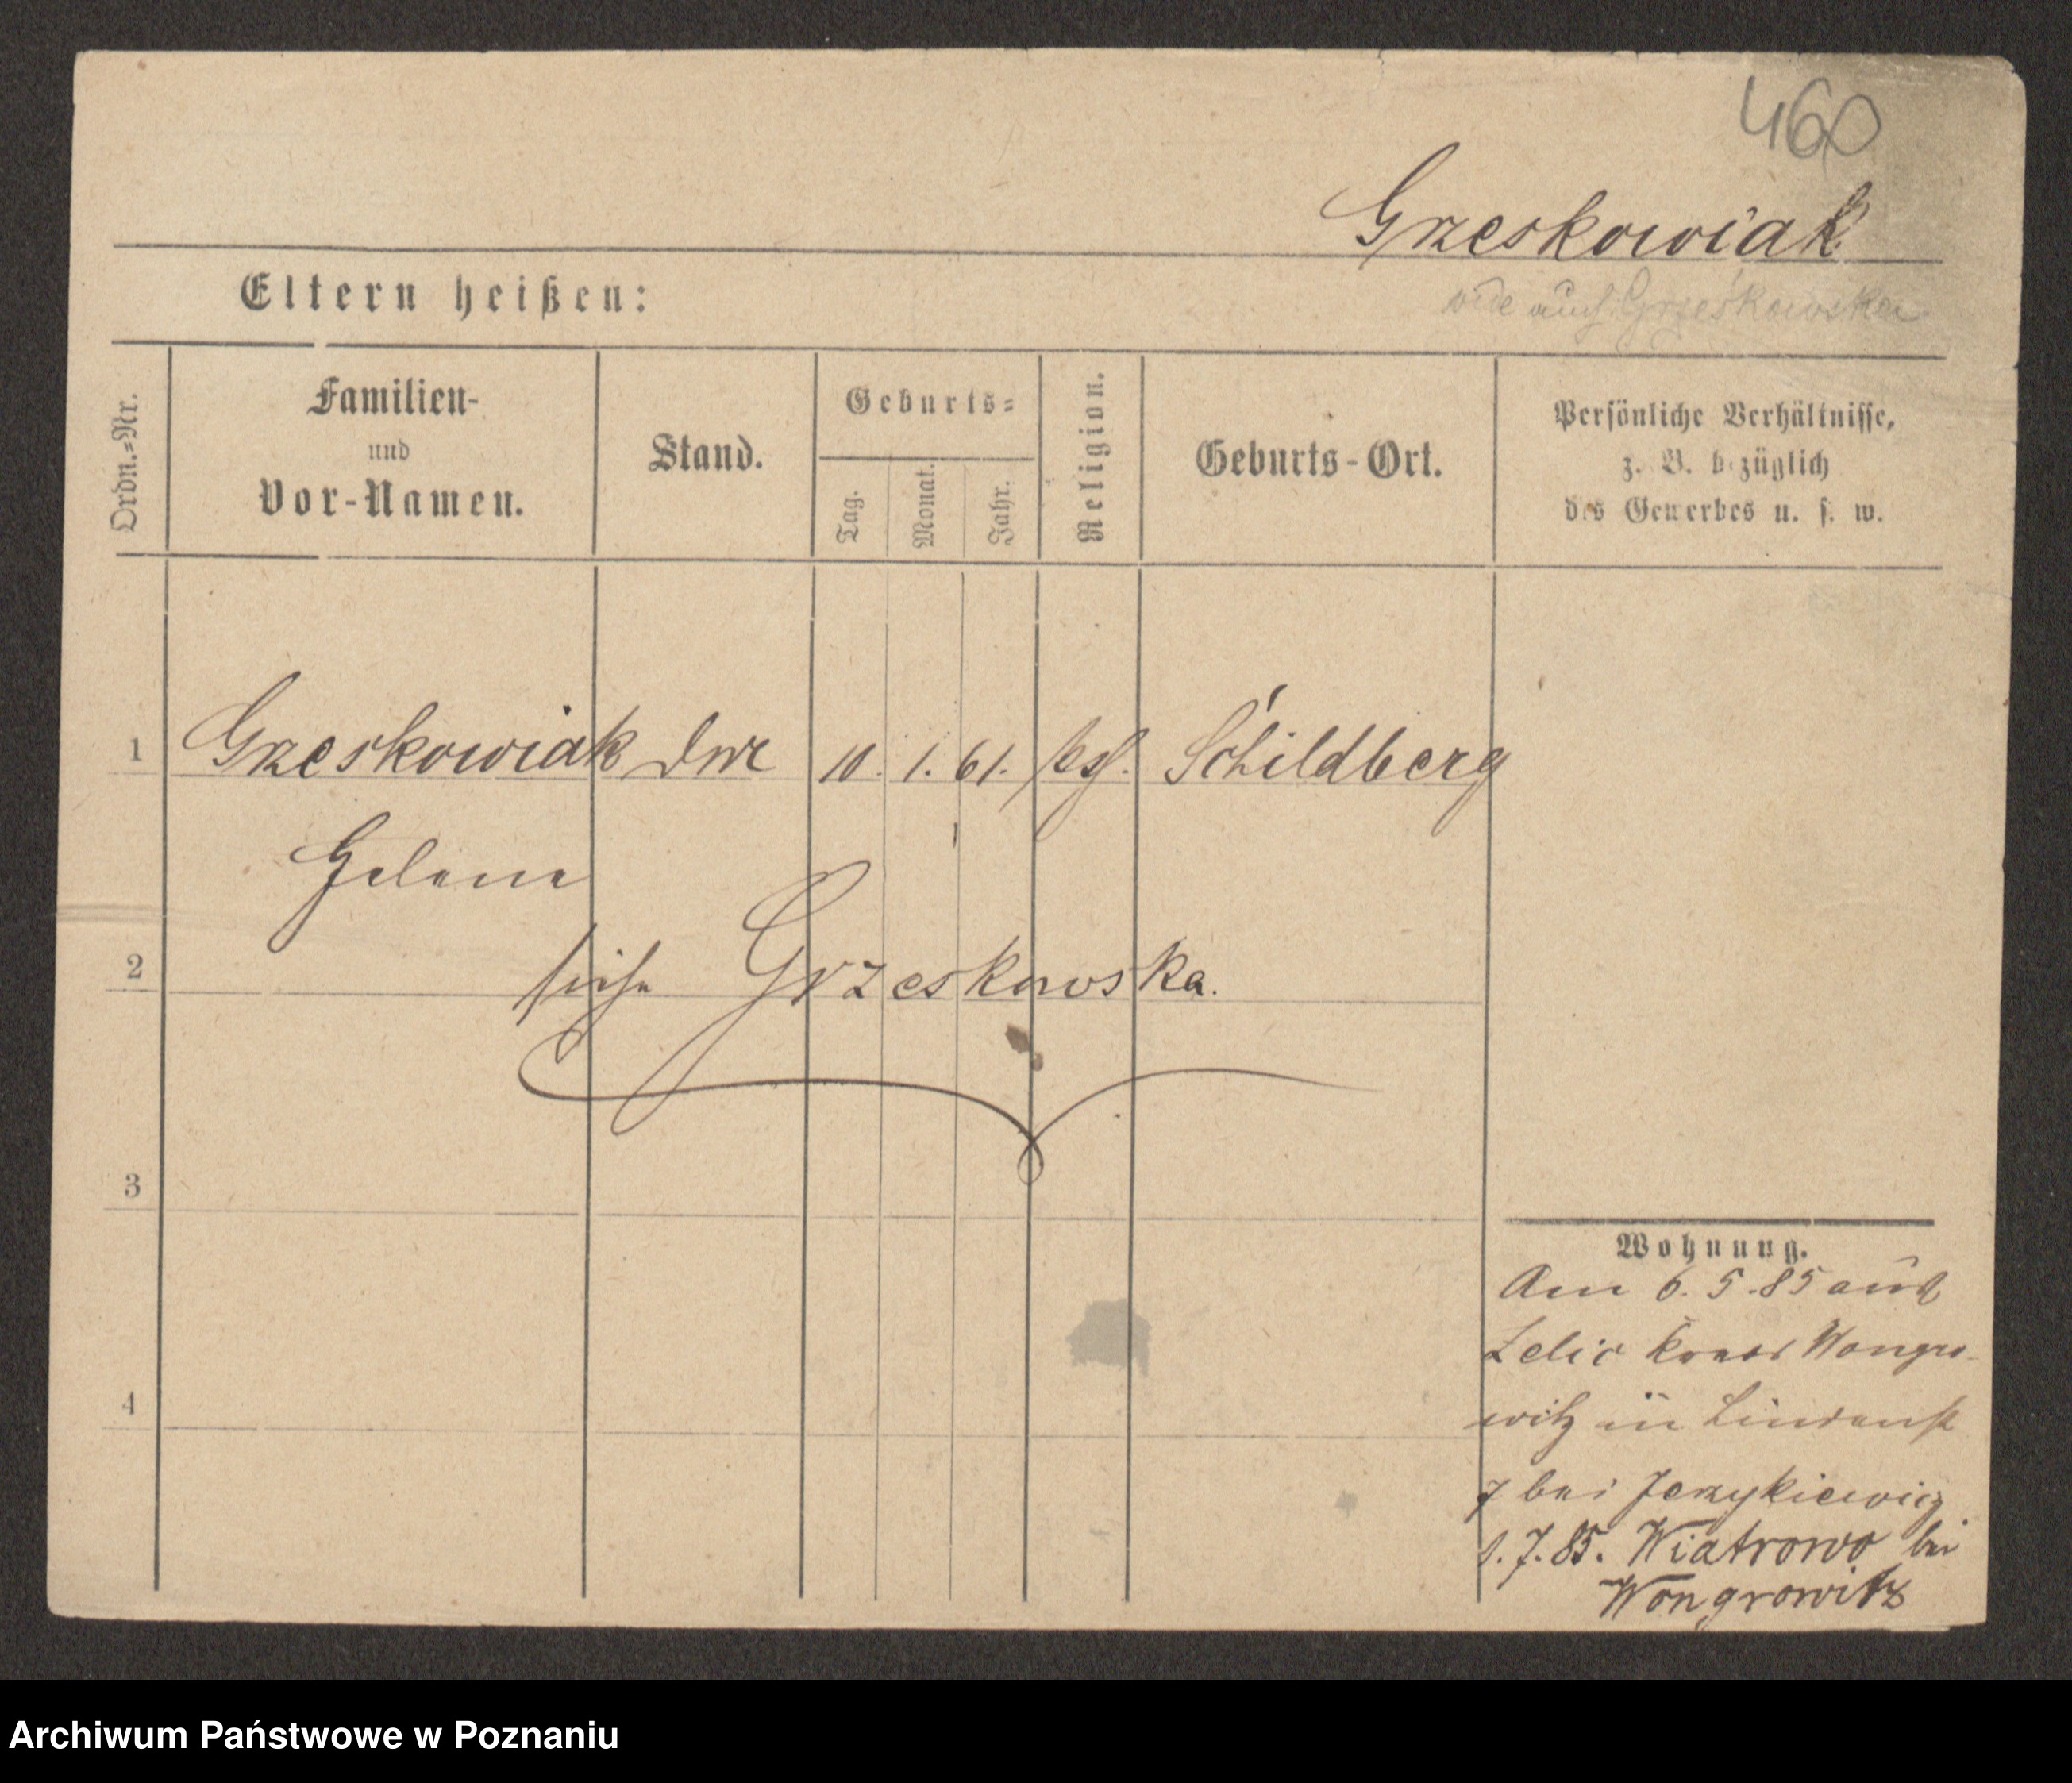 460
Grzeskowiak
vide auch Grześkowska
Eltern heißen:
Ordn.=Nr.
Familien-
und
Vor-Namen.
Stand.
Geburts=
Tag.
Monat.
Jahr.
Religion.
Geburts-Ort.
Persönliche Verhältnisse,
z. B. bezüglich
des Gewerbes u. s. w.
1 Grzeskowiak 10. 1. 61. Schildberg
Helene
2 siehe Grzeskowska.
3
4
Wohnung.
Am 6. 5. 85 aus
Zelic Kreis Wongro-
witz in Lindenst
7 bei Jerzykiewicz
1. 7. 85. Wiatrowo bei
Wongrowitz
Archiwum Państwowe w Poznaniu